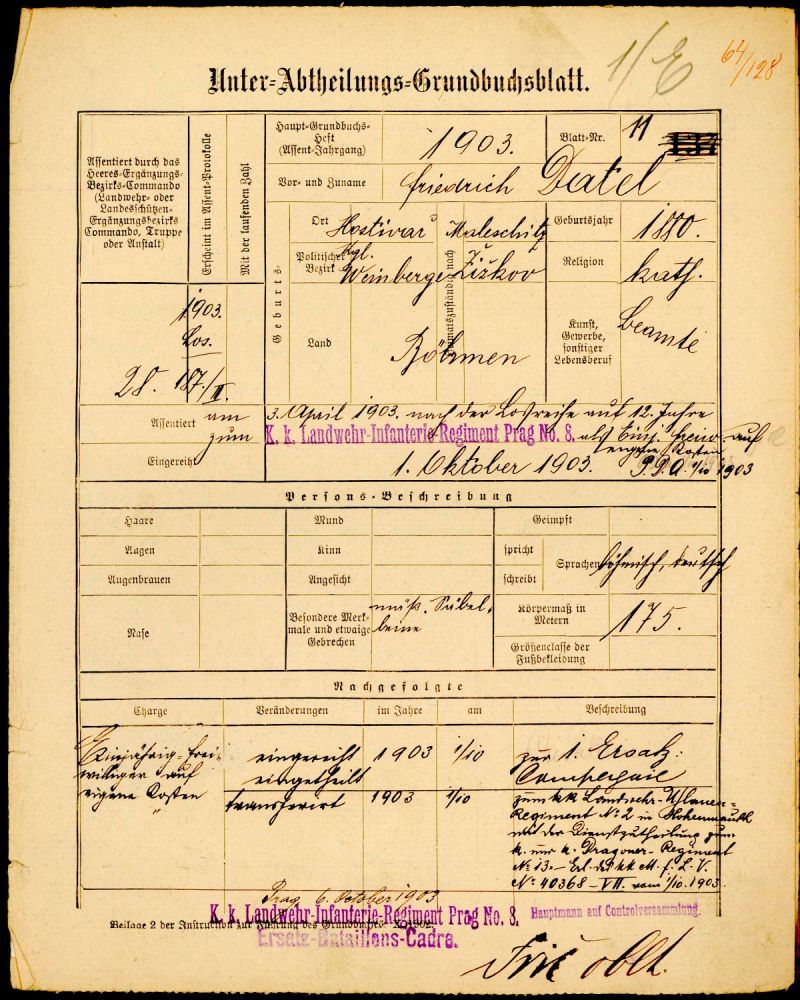 1/E
64/128
Unter-Abtheilungs-Grundbuchsblatt.
Assentiert durch das
Heeres-Ergänzungs-
Bezirks-Commando
(Landwehr- oder
Landesschützen-
Ergänzungsbezirks
Commando, Truppe
oder Anstalt)
Erscheint im Assent-Protokolle
Mit der laufenden Zahl
Haupt-Grundbuchs-
Heft
(Assent-Jahrgang)
1903.
Blatt-Nr.
11
137
Vor- und Zuname
Friedrich Datel
Geburts-
Ort
Hostivař
Politischer
Bezirk
Kgl.
Weinberge
Land
Böhmen
Heimatszuständig nach
Maleschitz
Žižkov
Geburtsjahr
1880.
Religion
kath.
Kunst,
Gewerbe,
sonstiger
Lebensberuf
Beamte
1903.
Los.
28. 187./II.
Assentiert
am
3. April 1903. nach der Losreihe auf 12. Jahre
zum
K. k. Landwehr-Infanterie-Regiment Prag No. 8.
als Einj. Freiw. auf
eigene Kosten
Eingereiht
1. Oktober 1903.
P.P.A. 1/10 1903
Persons-Beschreibung
Haare
Mund
Geimpft
Augen
Kinn
spricht
Sprachen
böhmisch, deutsch
Augenbrauen
Angesicht
schreibt
Nase
Besondere Merk-
male und etwaige
Gebrechen
mäß. Säbel-
beine
Körpermaß in
Metern
175.
Größenclasse der
Fußbekleidung
Nachgefolgte
Charge
Veränderungen
im Jahre
am
Beschreibung
Einjährig-Frei-
williger auf
eigene Kosten
eingereiht
eingetheilt
1903
1/10
zur 1. Ersatz-
Compagnie
"
transferirt
1903
1/10
zum kk Landwehr-Uhlanen-
Regiment No 2 in Hohenmauth
mit der Dienstzutheilung zum
k. und k. Dragoner-Regiment
No 13.- Erl. des kk M. f. L. V.
No 40368-VII. vom 1/10 1903.
Prag 6. October 1903
K. k. Landwehr-Infanterie-Regiment Prag No. 8.
Hauptmann auf Controlversammlung.
Beilage 2 der Instruction zur Führung des Grundbuches
1902.
Ersatz-Bataillons-Cadre.
oblt.